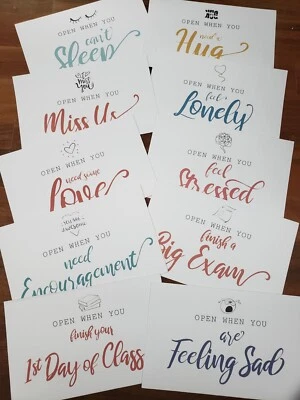 OPEN WHEN YOU
can't
Sleep
OPEN WHEN YOU
need a
Hug
miss
you
OPEN WHEN YOU
Miss Us
OPEN WHEN YOU
feel
Lonely
OPEN WHEN YOU
need some
Love
OPEN WHEN YOU
feel
Stressed
YOU ARE
awesome
OPEN WHEN YOU
need
Encouragement
OPEN WHEN YOU
finish a
Big Exam
OPEN WHEN YOU
finish your
1st Day of Class
OPEN WHEN YOU
are
Feeling Sad